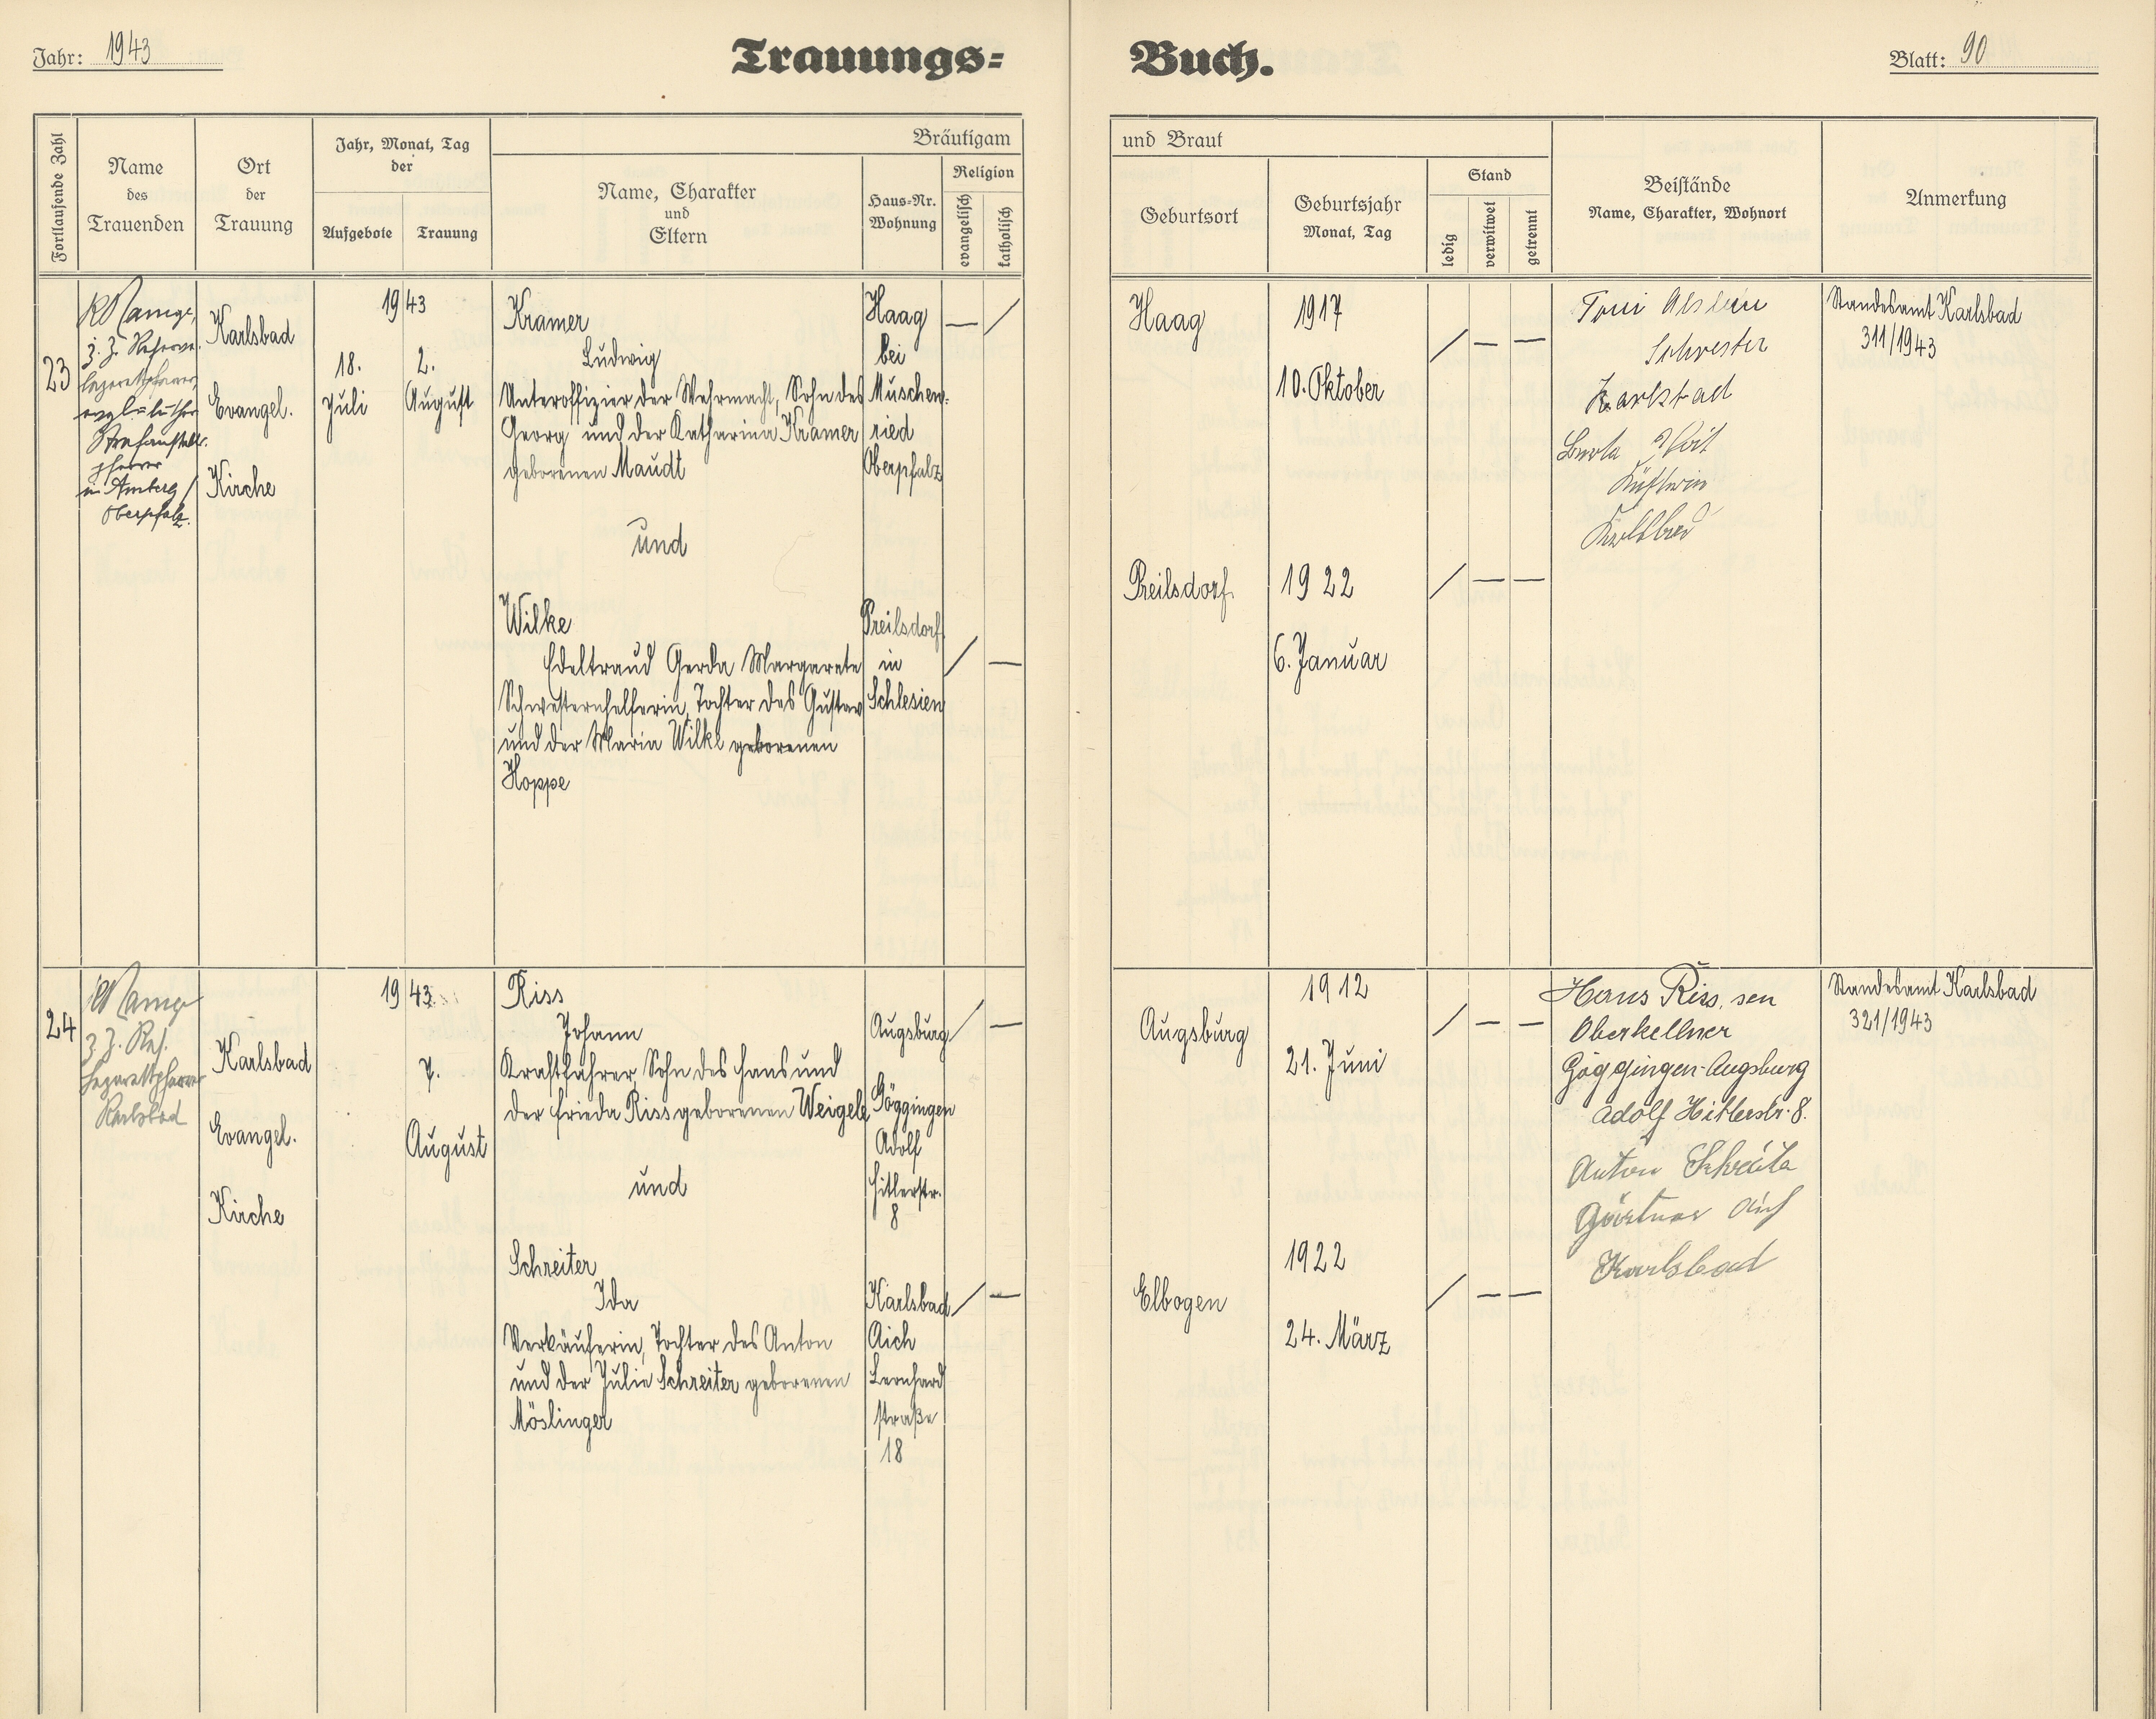 Jahr: 1943
Trauungs=
Buch.
Blatt: 90
Fortlaufende Zahl
Name
des
Trauenden
Ort
der
Trauung
Jahr, Monat, Tag
der
Aufgebote
Trauung
Bräutigam
Name, Charakter
und
Eltern
Haus-Nr.
Wohnung
Religion
evangelisch
katholisch
und Braut
Geburtsort
Geburtsjahr
Monat, Tag
Stand
ledig
verwitwet
getrennt
Beistände
Name, Charakter, Wohnort
Anmerkung
23
z. Z. Reserve-
lazarettpfarrer,
Strafanstalts-
pfarrer
in Amberg/
Oberpfalz.
Karlsbad
Evangel.
Kirche
1943
18.
Juli
2.
August
Kramer
Ludwig
Unteroffizier der Wehrmacht, Sohn des
Georg und der Katharina Kramer
geborenen Maudt
und
Wilke
Edeltraud Gerda Margarete
Schwesternhelferin, Tochter des Gustav
und der Maria Wilke geborenen
Hoppe
Haag
bei
Muschen-
ried
Oberpfalz
— /
Preilsdorf
in
Schlesien
/ —
Haag
1917
10. Oktober
/ — —
Preilsdorf
1922
6. Januar
/ — —
Toni
Schwester
Karlsbad
Karlsbad
Standesamt Karlsbad
311/1943
24
z. Z. Res.
Lazarettpfarrer
Karlsbad
Karlsbad
Evangel.
Kirche
1943
7.
August
Riss
Johann
Kraftfahrer, Sohn des Hans und
der Frieda Riss geborenen Weigele
und
Schreiter
Ida
Verkäuferin, Tochter des Anton
und der Julie Schreiter geborenen
Möslinger
Augsburg
Göggingen
Adolf
Hitlerstr.
8
/ —
Karlsbad
Aich
Leonhard
straße
18
/ —
Augsburg
1912
21. Juni
/ — —
Elbogen
1922
24. März
/ — —
Hans Riss, sen
Oberkellner
Göggingen-Augsburg
Adolf Hitlerstr. 8.
Anton
Gärtner Aich
Karlsbad
Standesamt Karlsbad
321/1943